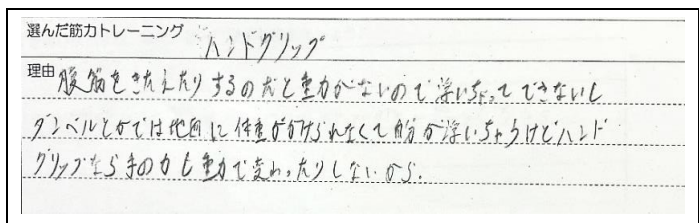 選んだ筋力トレーニング ハンドグリップ
理由 腹筋をきたえたりするのだと重力がないので浮いちゃってできないし
ダンベルとかでは地面に体重がかけられなくて自分が浮いちゃうけどハンド
グリップなら手の力も重力で変わったりしないから.